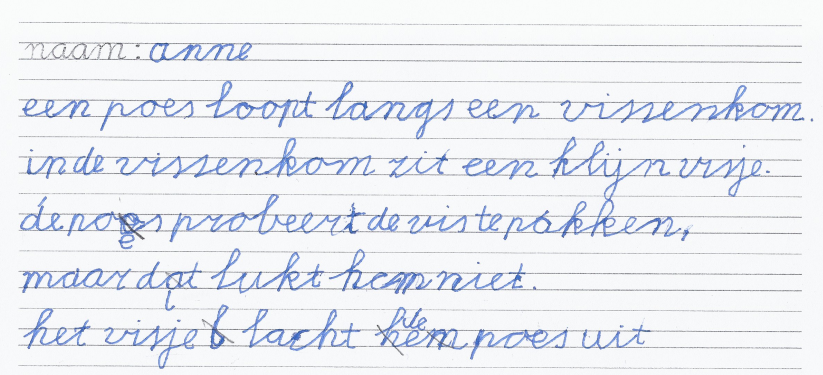 naam: anne
een poes loopt langs een vissenkom.
in de vissenkom zit een klijn visje.
de poes probeert de vis te pakken,
maar dat lukt hem niet.
het visje lacht de poes uit